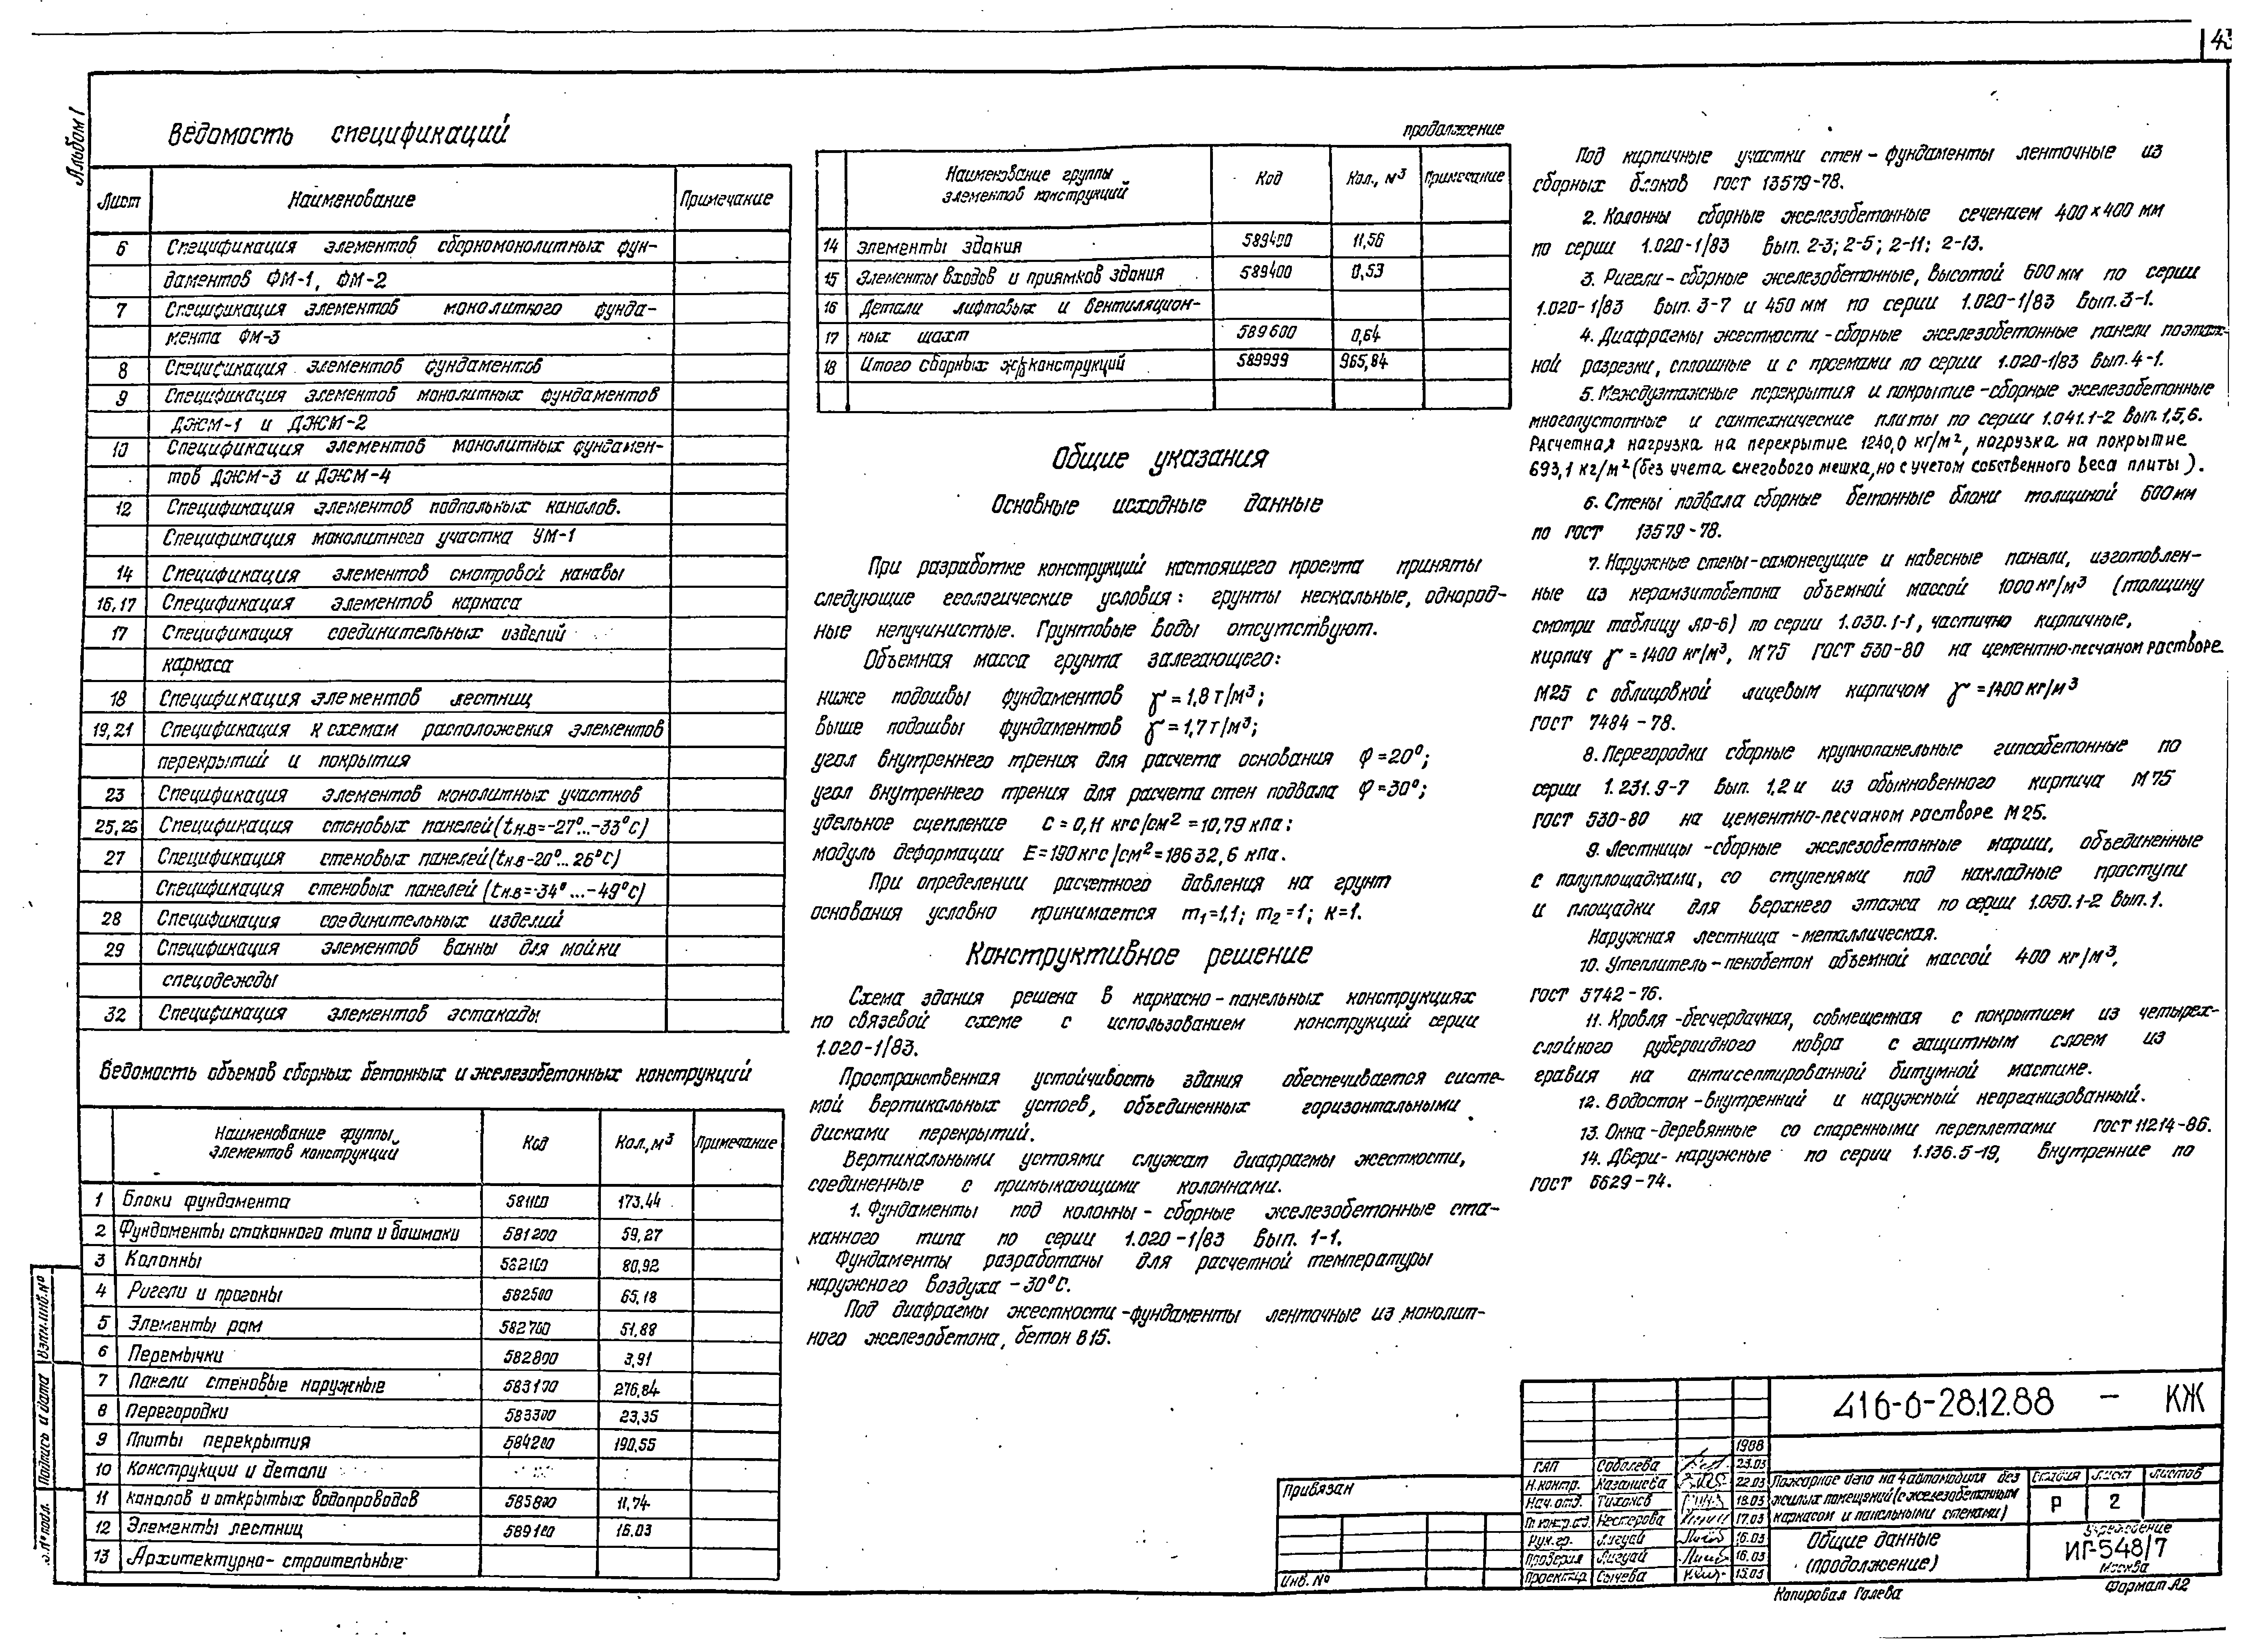 43
Альбом I
Ведомость спецификаций
Лист Наименование Примечание
6 Спецификация элементов сборномонолитных фун-
даментов ФМ-1, ФМ-2
7 Спецификация элементов монолитного фунда-
мента ФМ-3
8 Спецификация элементов фундаментов
9 Спецификация элементов монолитных фундаментов
ДЖМ-1 и ДЖМ-2
10 Спецификация элементов монолитных фундамен-
тов ДЖМ-3 и ДЖМ-4
12 Спецификация элементов подпольных каналов.
Спецификация монолитного участка УМ-1
14 Спецификация элементов смотровой канавы
16,17 Спецификация элементов каркаса
17 Спецификация соединительных изделий
каркаса
18 Спецификация элементов лестниц
19,21 Спецификация к схемам расположения элементов
перекрытий и покрытия
23 Спецификация элементов монолитных участков
25,26 Спецификация стеновых панелей (tн.в=-27°...-33°С)
27 Спецификация стеновых панелей (tн.в-20°...26°С)
Спецификация стеновых панелей (tн.в=-34°...-49°С)
28 Спецификация соединительных изделий
29 Спецификация элементов ванны для мойки
спецодежды
32 Спецификация элементов эстакады
Ведомость объемов сборных бетонных и железобетонных конструкций
Наименование группы
элементов конструкций Код Кол., м³ Примечание
1 Блоки фундамента 581100 173.44
2 Фундаменты стаканного типа и башмаки 581200 59,27
3 Колонны 582100 80,92
4 Ригели и прогоны 582500 65,18
5 Элементы рам 582700 51,88
6 Перемычки 582800 3,91
7 Панели стеновые наружные 583100 276,84
8 Перегородки 583300 23,35
9 Плиты перекрытия 584200 190,55
10 Конструкции и детали
11 каналов и открытых водопроводов 585800 11,74
12 Элементы лестниц 589100 16.03
13 Архитектурно-строительные
продолжение
Наименование группы
элементов конструкций Код Кол., м³ Примечание
14 элементы здания 589400 11,56
15 Элементы входов и приямков здания 589400 0,53
16 Детали лифтовых и вентиляцион-
17 ных шахт 589600 0,64
18 Итого сборных ж/б конструкций 589999 965,84
Общие указания
Основные исходные данные
При разработке конструкций настоящего проекта приняты
следующие геологические условия: грунты нескальные, однород-
ные непучинистые. Грунтовые воды отсутствуют.
Объемная масса грунта залегающего:
ниже подошвы фундаментов γ = 1,8 т/м³;
выше подошвы фундаментов γ = 1,7 т/м³;
угол внутреннего трения для расчета основания φ=20°;
угол внутреннего трения для расчета стен подвала φ=30°;
удельное сцепление С = 0,11 кгс/см² = 10,79 кпа;
модуль деформации Е=190 кгс/см²=18632,6 кпа.
При определении расчетного давления на грунт
основания условно принимается m₁=1,1; m₂=1; к=1.
Конструктивное решение
Схема здания решена в каркасно-панельных конструкциях
по связевой схеме с использованием конструкций серии
1.020-1/83.
Пространственная устойчивость здания обеспечивается систе-
мой вертикальных устоев, объединенных горизонтальными
дисками перекрытий.
Вертикальными устоями служат диафрагмы жесткости,
соединенные с примыкающими колоннами.
1. Фундаменты под колонны - сборные железобетонные ста-
канного типа по серии 1.020-1/83 вып. 1-1.
Фундаменты разработаны для расчетной температуры
наружного воздуха -30°С.
Под диафрагмы жесткости - фундаменты ленточные из монолит-
ного железобетона, бетон В15.
Под кирпичные участки стен - фундаменты ленточные из
сборных блоков ГОСТ 13579-78.
2. Колонны сборные железобетонные сечением 400×400 мм
по серии 1.020-1/83 вып. 2-3; 2-5; 2-11; 2-13.
3. Ригели - сборные железобетонные, высотой 600 мм по серии
1.020-1/83 вып. 3-7 и 450 мм по серии 1.020-1/83 вып. 3-1.
4. Диафрагмы жесткости - сборные железобетонные панели поэтаж-
ной разрезки, сплошные и с проемами по серии 1.020-1/83 вып. 4-1.
5. Междуэтажные перекрытия и покрытие - сборные железобетонные
многопустотные и сантехнические плиты по серии 1.041.1-2 вып. 1,5,6.
Расчетная нагрузка на перекрытие 1240,0 кг/м², нагрузка на покрытие
693,1 кг/м² (без учета снегового мешка, но с учетом собственного веса плиты).
6. Стены подвала сборные бетонные блоки толщиной 600 мм
по ГОСТ 13579-78.
7. Наружные стены - самонесущие и навесные панели, изготовлен-
ные из керамзитобетона объемной массой 1000 кг/м³ (толщину
смотри таблицу АР-6) по серии 1.030.1-1, частично кирпичные,
кирпич γ = 1400 кг/м³, М75 ГОСТ 530-80 на цементно-песчаном растворе
М25 с облицовкой лицевым кирпичом γ = 1400 кг/м³
ГОСТ 7484-78.
8. Перегородки сборные крупнопанельные гипсобетонные по
серии 1.231.9-7 вып. 1,2 и из обыкновенного кирпича М75
ГОСТ 530-80 на цементно-песчаном растворе М25.
9. Лестницы - сборные железобетонные марши, объединенные
с полуплощадками, со ступенями под накладные проступи
и площадки для верхнего этажа по серии 1.050.1-2 вып. 1.
Наружная лестница - металлическая.
10. Утеплитель - пенобетон объемной массой 400 кг/м³,
ГОСТ 5742-76.
11. Кровля - бесчердачная, совмещенная с покрытием из четырех-
слойного рубероидного ковра с защитным слоем из
гравия на антисептированной битумной мастике.
12. Водосток - внутренний и наружный неорганизованный.
13. Окна - деревянные со спаренными переплетами ГОСТ 11214-86.
14. Двери - наружные по серии 1.136.5-19, внутренние по
ГОСТ 6629-74.
Привязан
Инв. №
416-6-28.12.88 - КЖ
1988
ГАП Соболева 23.03
Н.контр. Казанцева 22.03
Нач.отд. Тихонов 18.03
Гл.констр.отд. Нестерова 17.03
Рук.гр. Лигуай 16.03
Проверил Лигуай 16.03
Проектир. Сычева 15.03
Пожарное депо на 4 автомобиля без
жилых помещений (с железобетонным
каркасом и панельными стенами)
Стадия Лист Листов
Р 2
Общие данные
(продолжение)
Учреждение
ИГ-548/7
Москва
Копировал Голева
Формат А2
Взам.инв.№
Подпись и дата